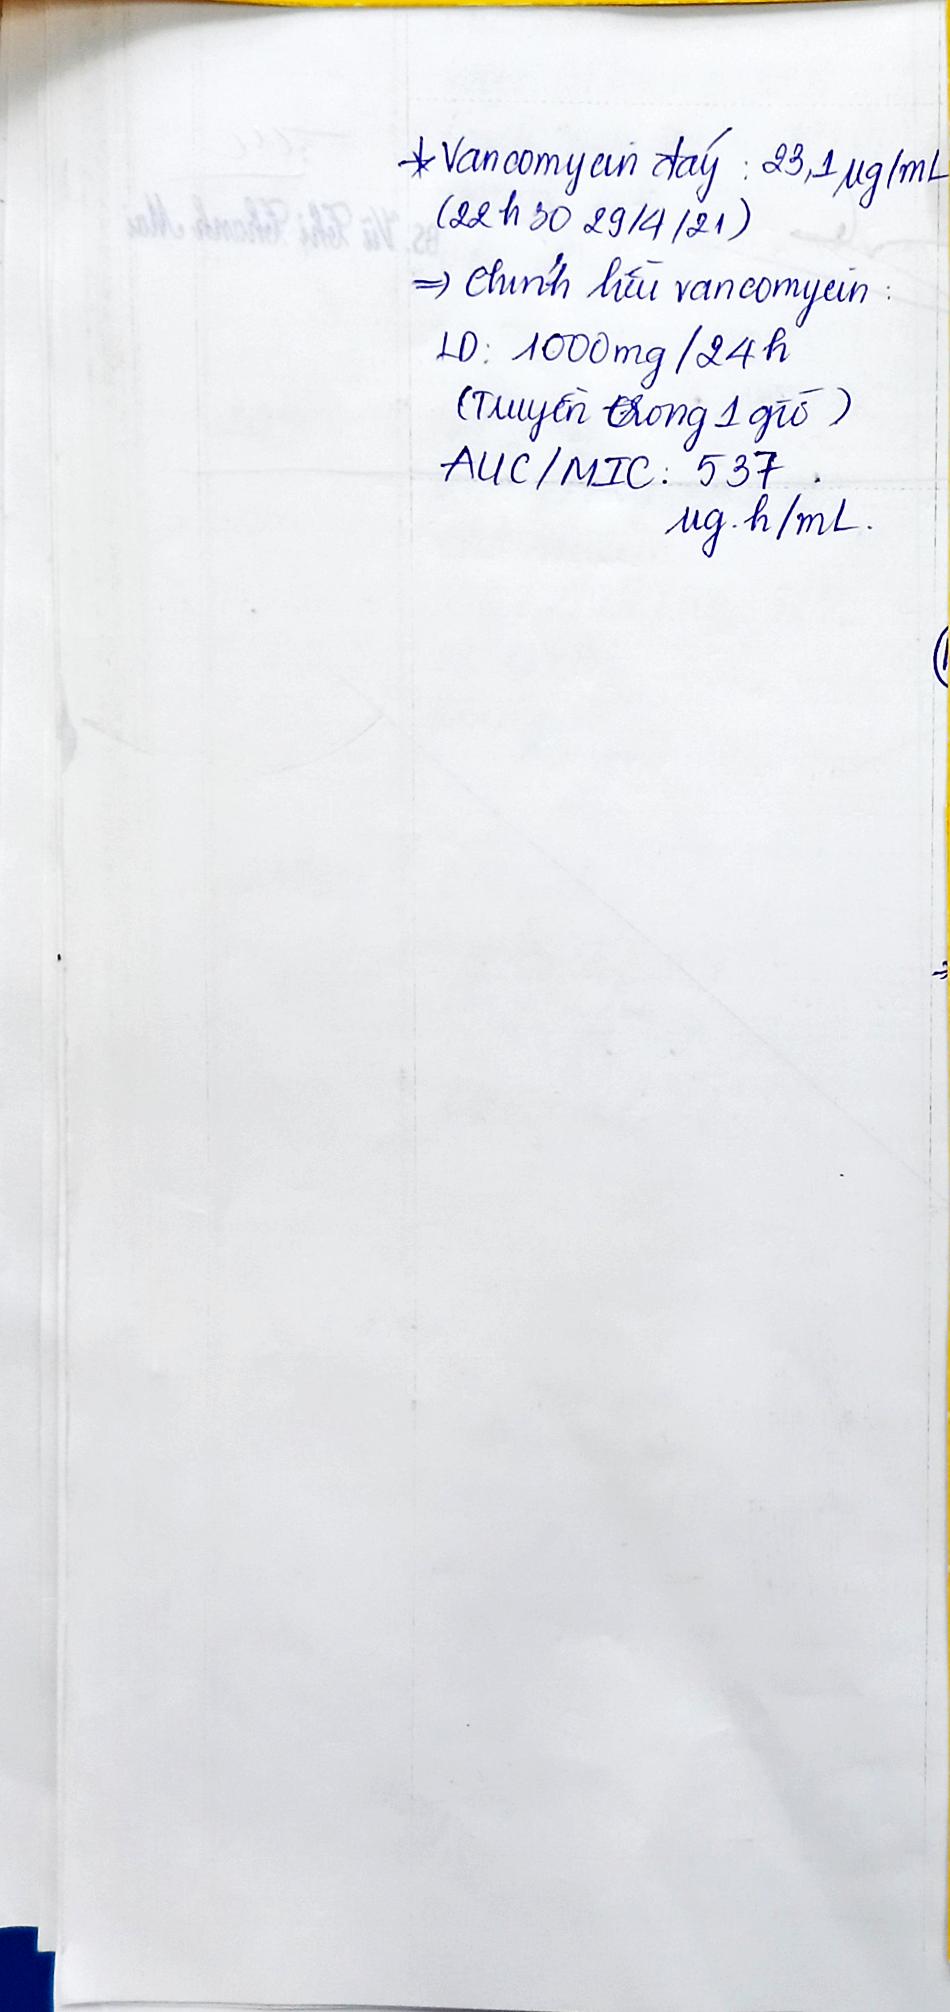 * Vancomycin đáy : 23,1 µg/mL
(22h30 29/4/21)
=> Chỉnh liều vancomycin :
LD: 1000mg/24h
(Truyền trong 1 giờ)
AUC/MIC: 537
µg.h/mL.